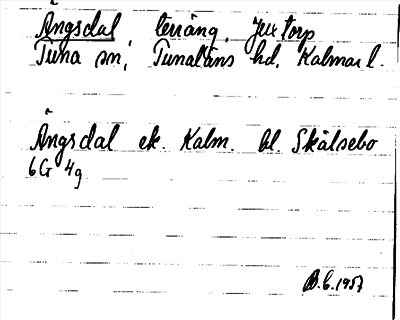 Ängsdal terräng, f. torp
Tuna sn, Tunaläns hd, Kalmar l.
Ängsdal ek. Kalm. bl Skälsebo
6G 4g
B.C. 1957